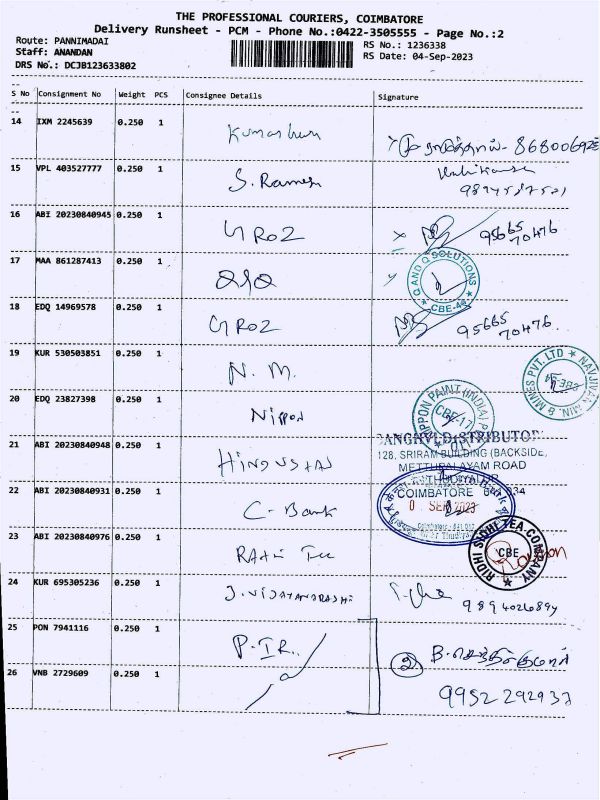 THE PROFESSIONAL COURIERS, COIMBATORE
Delivery Runsheet - PCM - Phone No.:0422-3505555 - Page No.:2
Route: PANNIMADAI
RS No.: 1236338
Staff: ANANDAN
RS Date: 04-Sep-2023
DRS No.: DCJB123633802
S No Consignment No Weight PCS Consignee Details Signature
14 IXM 2245639 0.250 1
15 VPL 403527777 0.250 1 S. Ramesh
16 ABI 20230840945 0.250 1 GROZ 95665 70476
17 MAA 861287413 0.250 1 Q AND Q SOLUTIONS
18 EDQ 14969578 0.250 1 GROZ 95665 70476
19 KUR 530503851 0.250 1 N. M. NAVJIVAN MIN. & MINES PVT. LTD
20 EDQ 23827398 0.250 1 Nippon NIPPON PAINT (INDIA) CBE-17
21 ABI 20230840948 0.250 1 HINDUSTAN
128, SRIRAM BUILDING (BACKSIDE,
METTUPALAYAM ROAD
22 ABI 20230840931 0.250 1 C-Bank
COIMBATORE
SEP 2023
23 ABI 20230840976 0.250 1 RIDHI SIDHI TEA COMPANY CBE
24 KUR 695305236 0.250 1 9894026894
25 PON 7941116 0.250 1 P.IR.. 2 B.
26 VNB 2729609 0.250 1 9952 292937